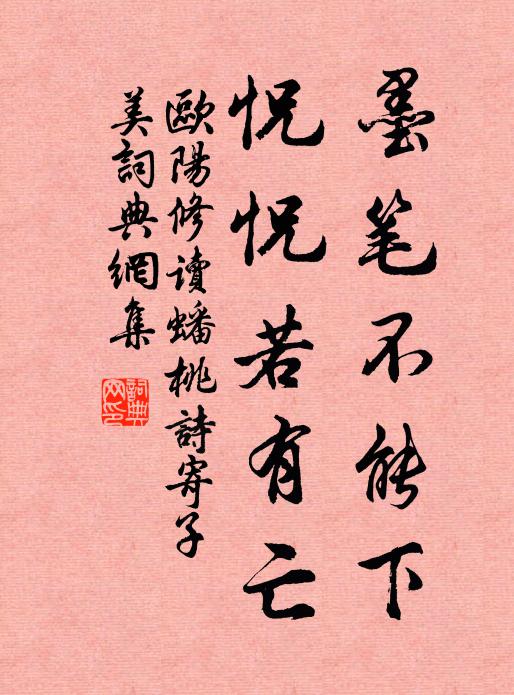 墨笔不能下
怳怳若有亡
歐陽修讀蟠桃詩寄子
美詞典網集
詞典网印